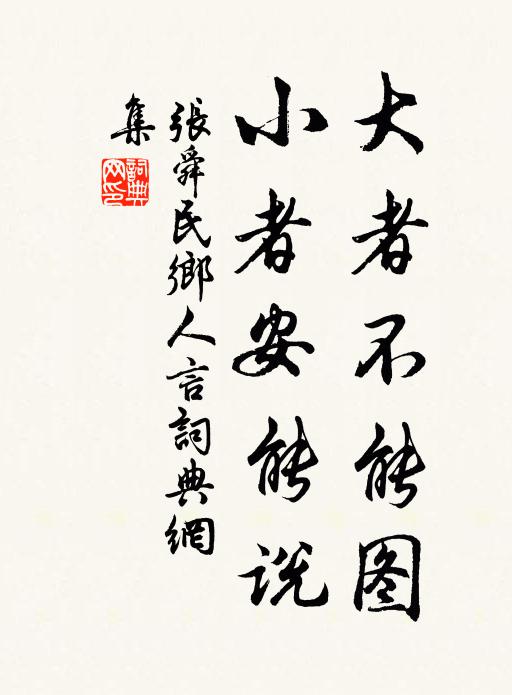 大者不能图
小者安能说
張舜民鄉人言詞典網
集
詞典网印